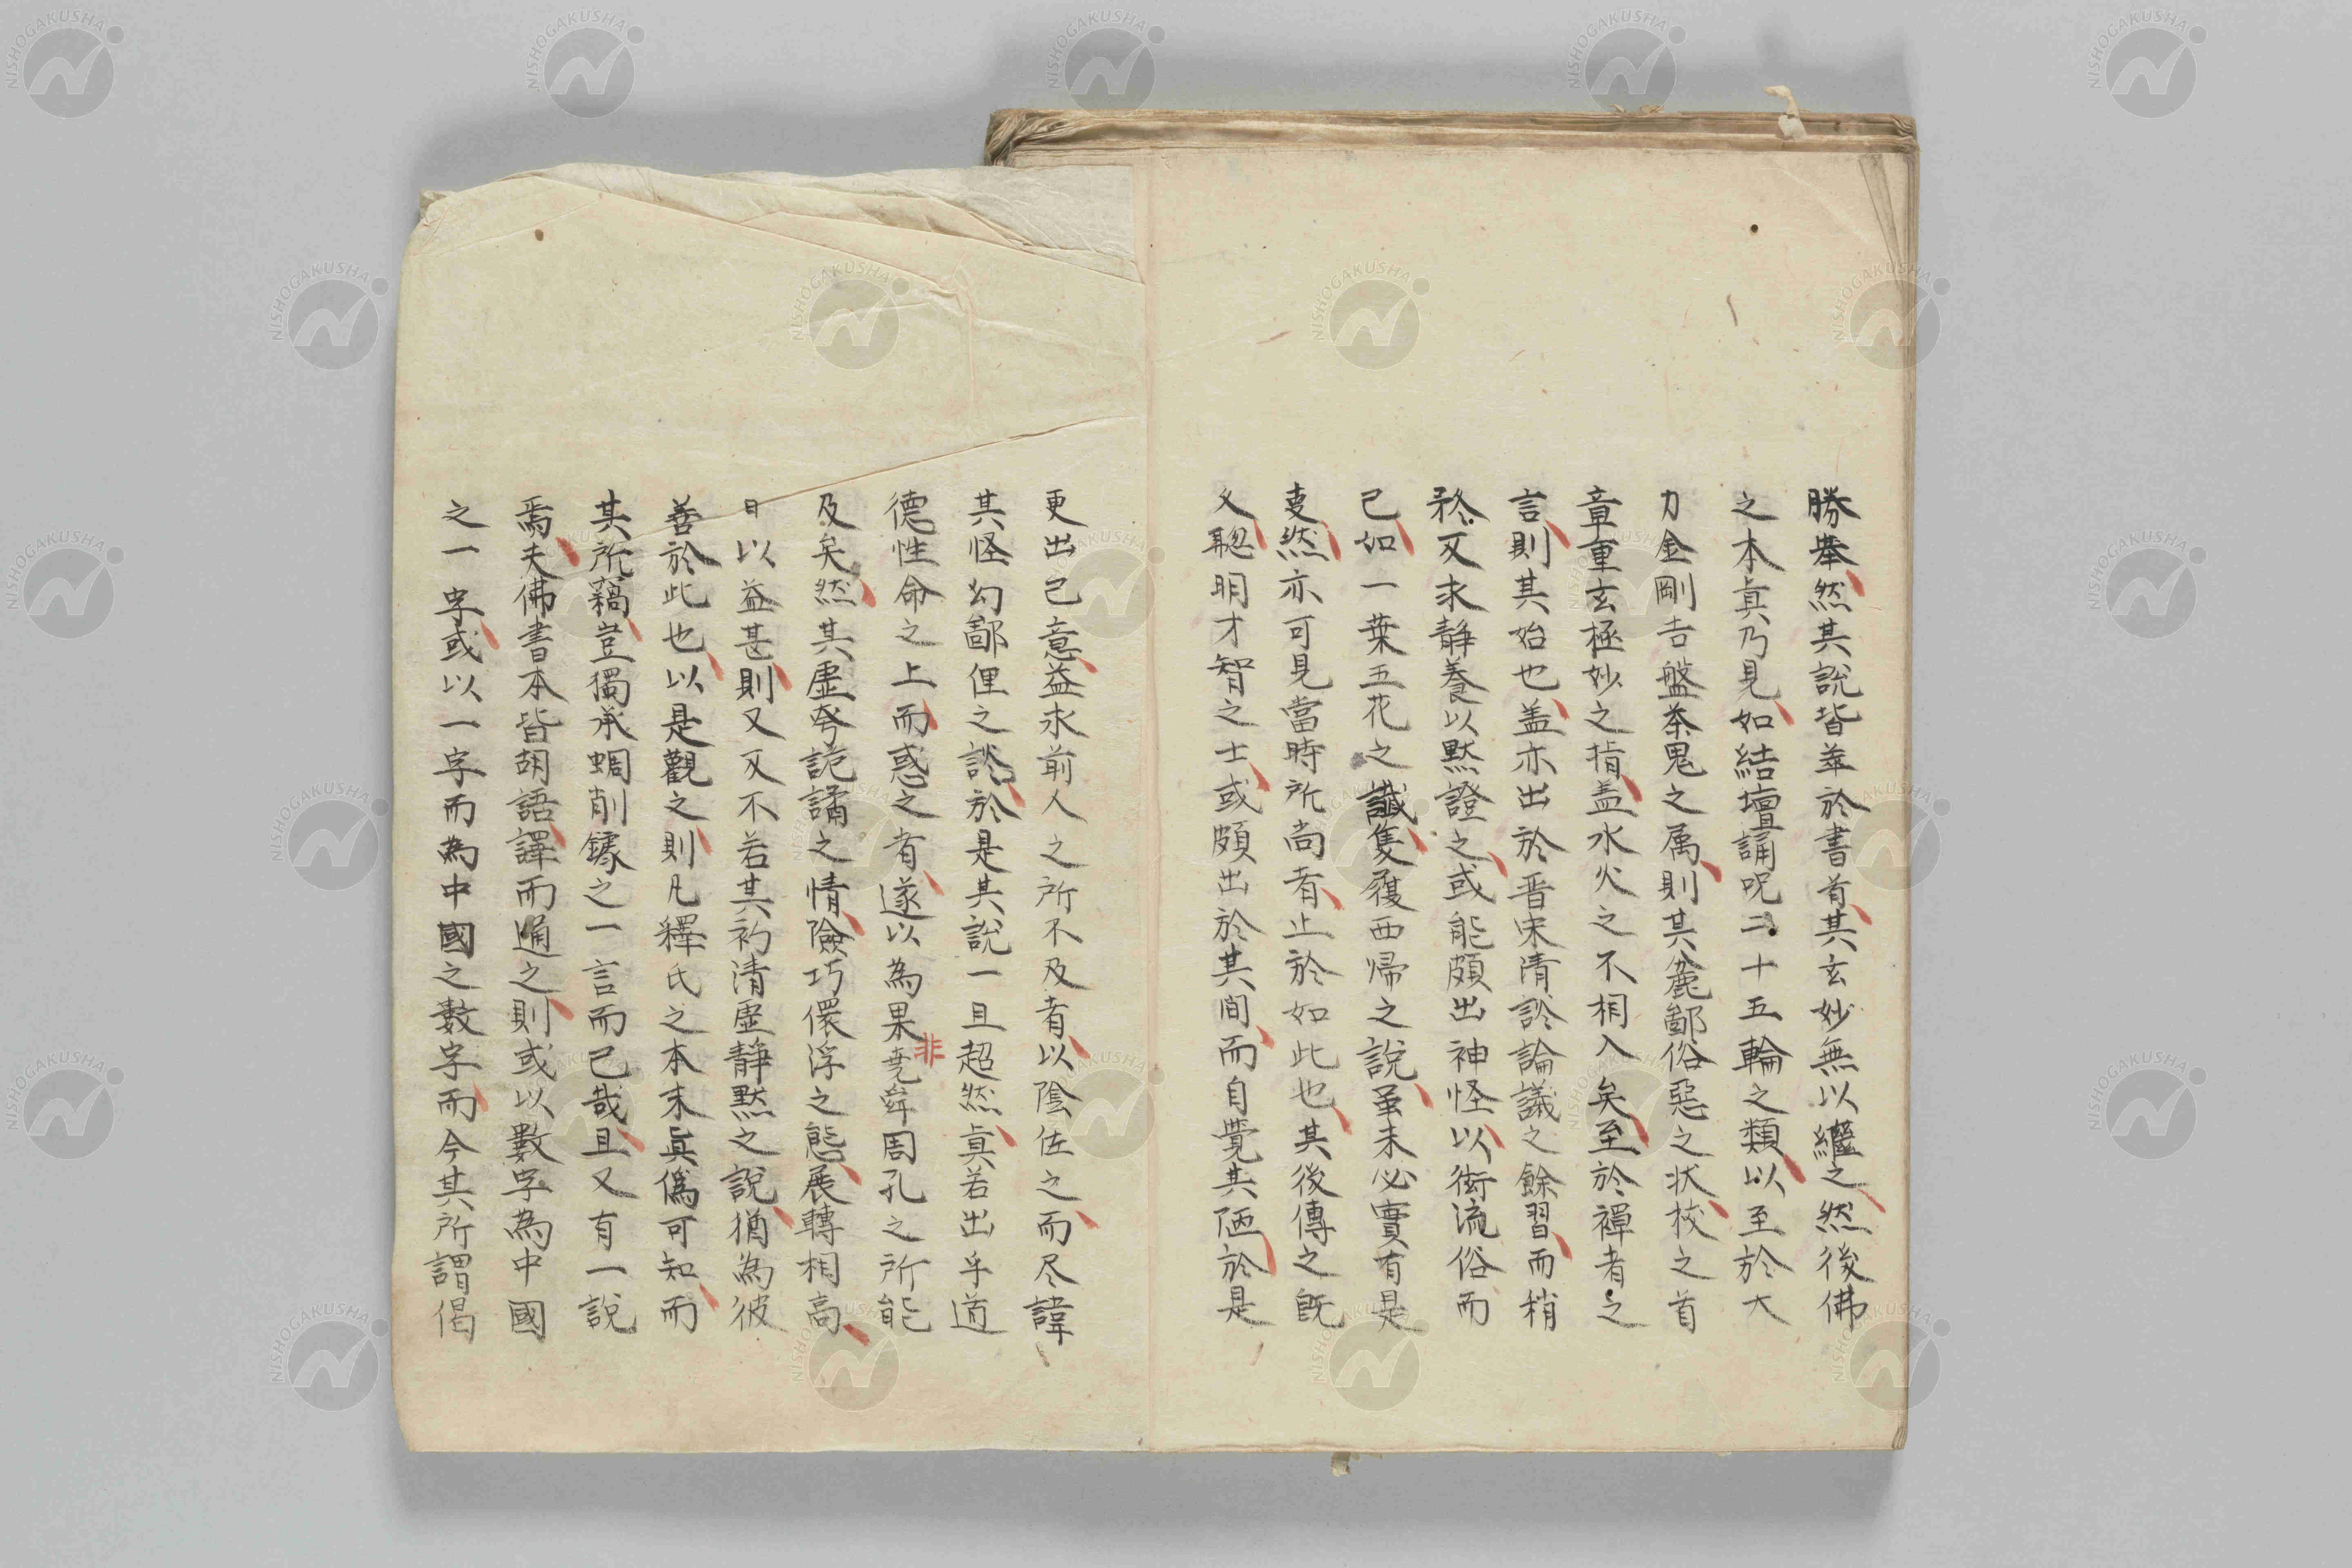 勝擧然其說皆萃於書首其玄妙無以繼之然後佛
之本眞乃見如結壇誦呪二十五輪之類以至於大
力金剛吉盤荼鬼之属則其麁鄙俗惡之状校之首
章重玄極妙之指盖水火之不相入矣至於禪者之
言則其始也盖亦出於晋宋清談論議之餘習而稍
務又求靜養以默證之或能頗出神怪以衒流俗而
已如一葉五花之讖隻履西帰之說虽未必實有是
事然亦可見當時所尚者止於如此也其後傳之既
久聰明才智之士或頗出於其間而自覺其陋於是
更出己意益求前人之所不及者以陰佐之而尽諱
其怪幻鄙俚之談於是其說一旦超然眞若出乎道
德性命之上而惑之者遂以為果非尭舜周孔之所能
及矣然其虛夸詭譎之情險巧儇浮之態展轉相高
日以益甚則又反不若其初清虛靜默之說猶為彼
善於此也以是觀之則凡釋氏之本末眞僞可知而
其所竊豈獨承蜩削鐻之一言而已哉且又有一說
焉夫佛書本皆胡語譯而通之則或以數字為中國
之一字或以一字而為中國之數字而今其所謂偈
NISHOGAKUSHA